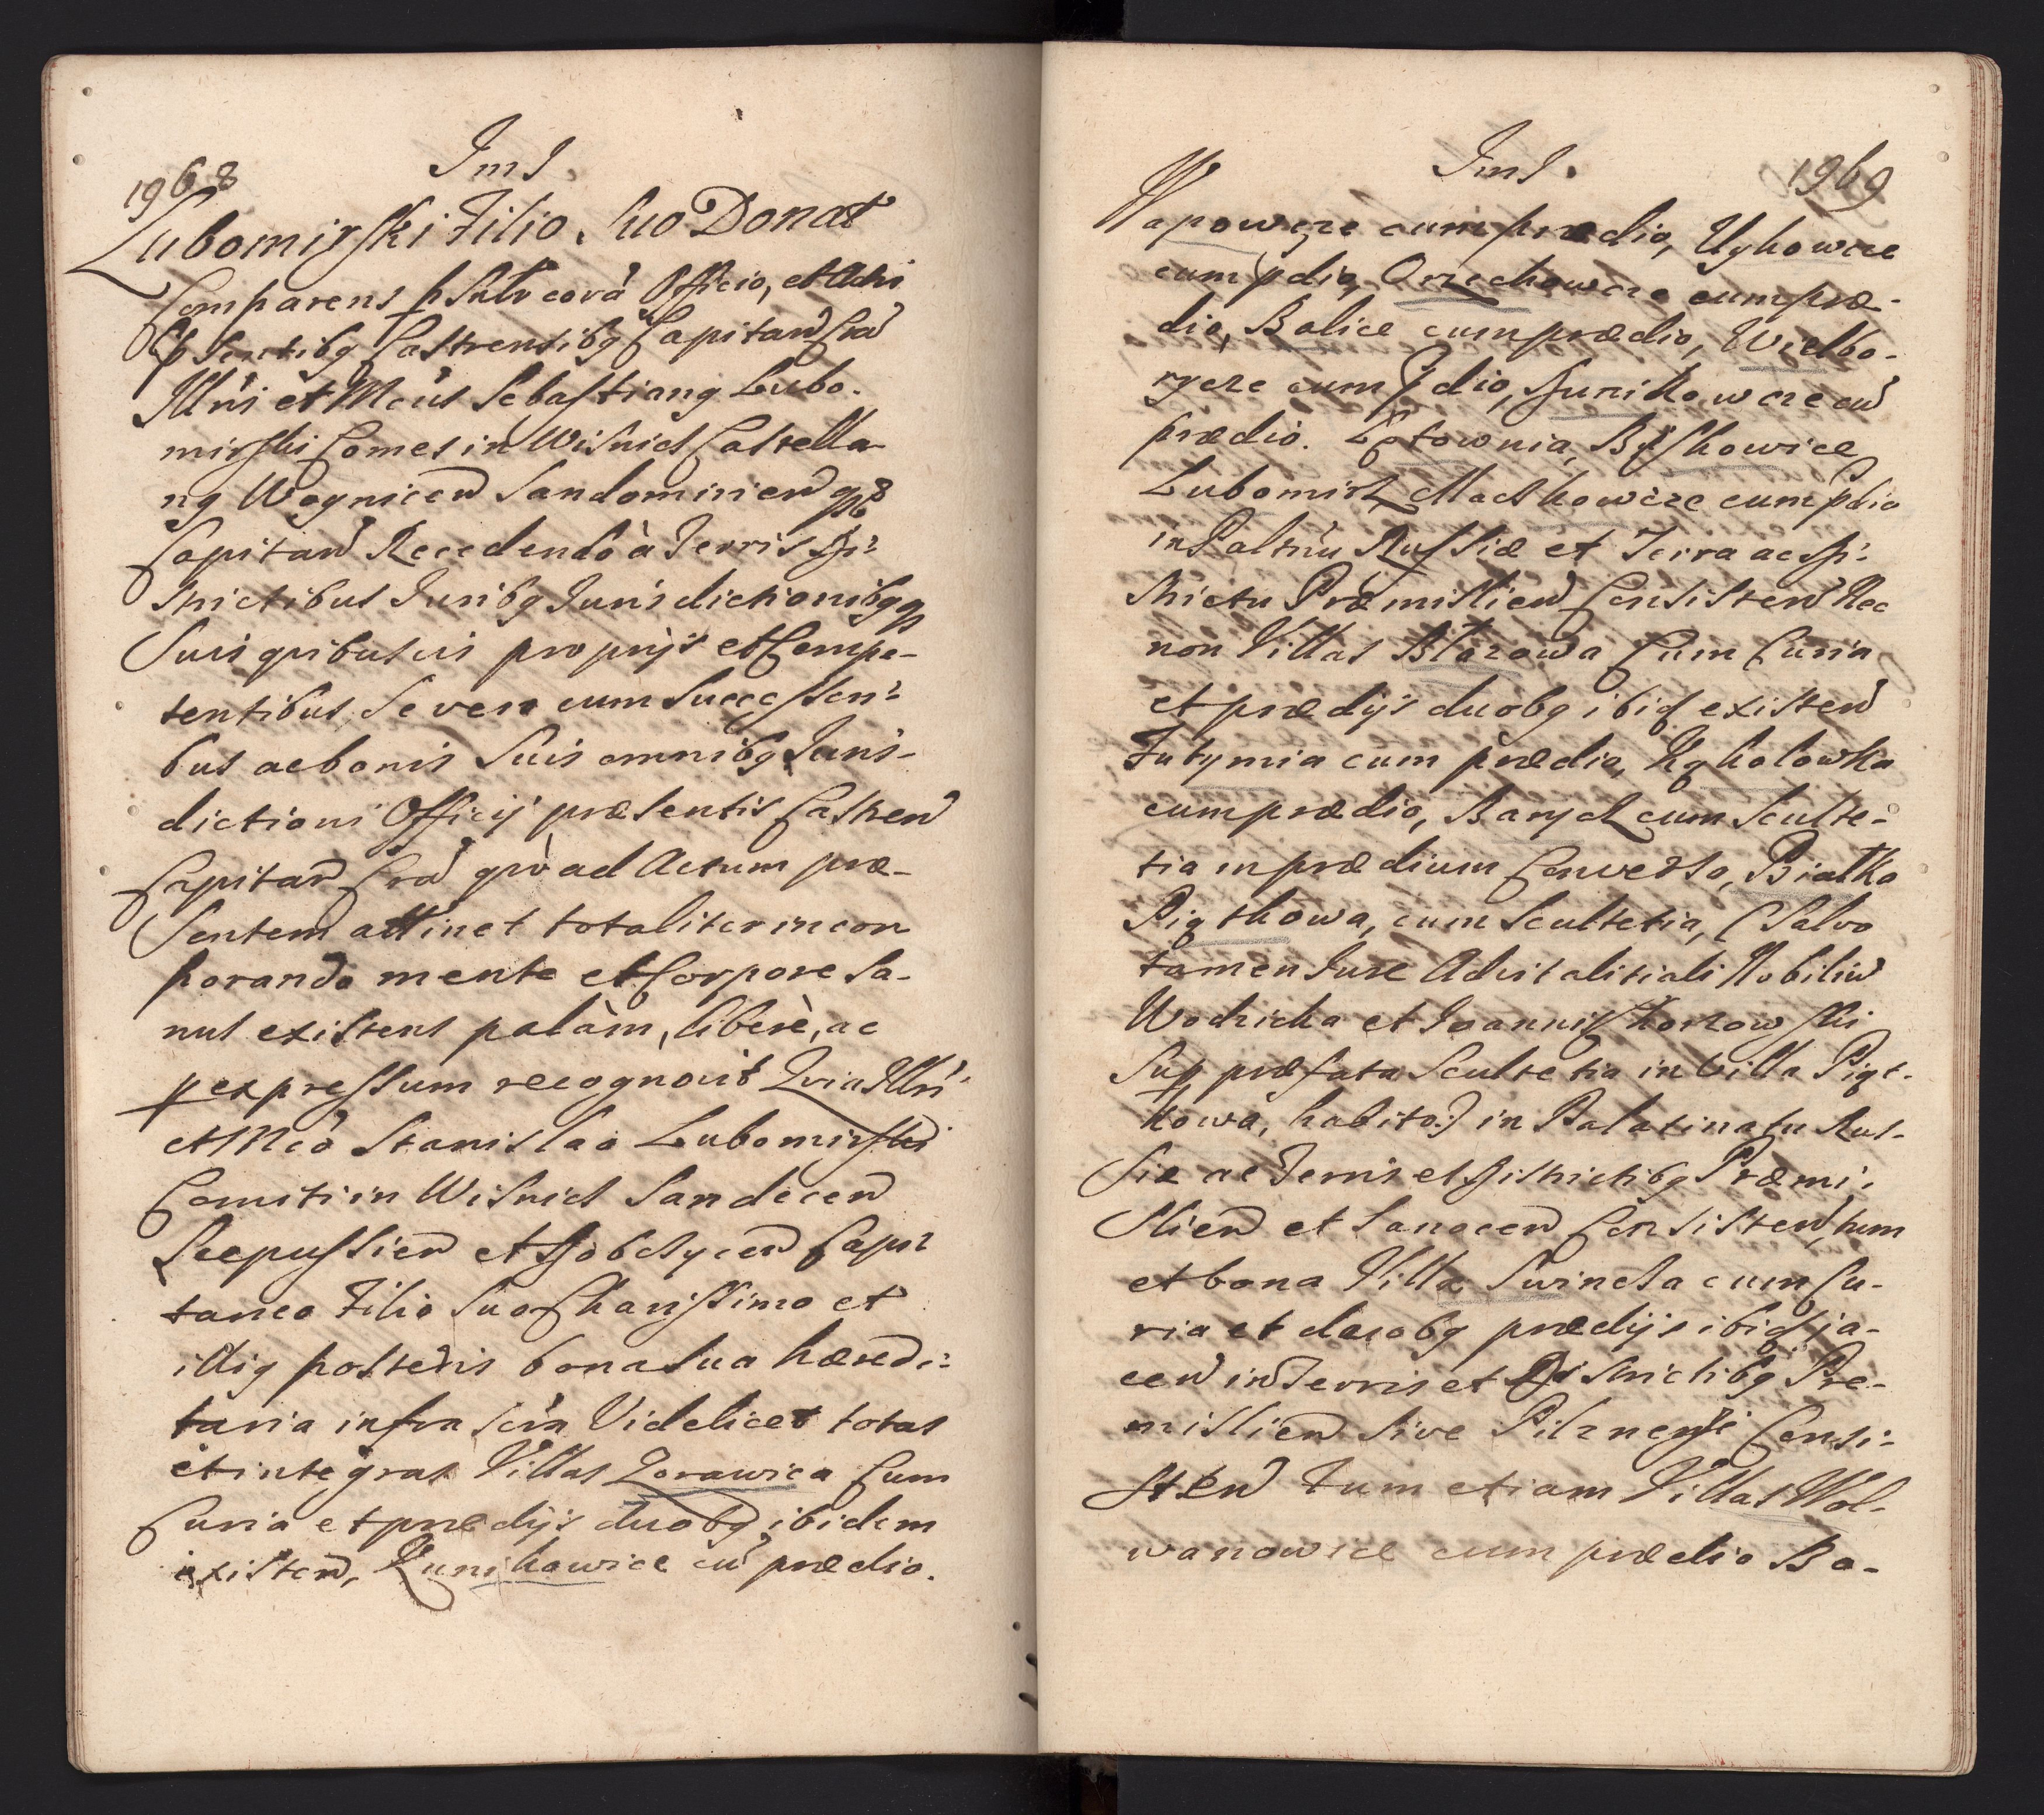 1968
ImI.
Lubomirski Filio Suo Donat
Comparens psnlr corà Officio, et Actis
psentibq Castrensibq Capitan Cra
Illris et Mcus Sebastianq Lubo-
mirski Comes in Wisnicz Castella-
nq Woynicen Sandomirien
Capitan Recedendo à Terris Di-
strictibus Juribq Jurisdictionibq
Suis quibusvis proprijs et Compe-
tentibus, Se vero cum Successori-
bus ac bonis Suis omnibq Juris-
dictioni Officij præsentis Castren
Capitan Cra quò ad Actum præ-
Sentem attinet totaliter incor
porando mente et Corpore Sa-
nus existens palàm, liberè, ac
p expressum recognovit Quia Illri
et Mco Stanislao Lubomirski
Comiti in Wisnicz Sandecen
Scepussien et Dobczycen Capi-
taneo Filio Suo Charissimo et
illiq posteris bona Sua hæredi-
taria infra scra Videlicet totas
et integras Villas Zorawica Cum
Curia et prædijs duobq ibidem
existen, Kunikowice cu prædio.
ImI.
1969
Wapowcze cum prædio, Uykowcze
cum pdio, Orzechowcze cum præ-
dio, Balice cum prædio, Wielbo-
rycze cum pdio, Hunikowcze cu
prædio. Letownia, Byskowice
Lubomirz, Mackowcze cum pdio
in Paltnu Russiæ et Terra ac Di-
strictu Præmislien Consisten Nec
non Villas Blozowa Cum Curia
et prædijs duobq ibid existen
Futymia cum prædio, Kąkolowka
cum prædio, Barycz cum Sculte-
tia in prædium Conversa, Białka
Piątkowa, cum Scultetia, (Salvo
tamen Jure Advitalitiali Nobiliu
Wodzicka et Joannis Korzowski
Sup præfata Scultetia in Villa Piąt-
kowa, habito) in Palatinatu Rus-
siæ ac Terris et Districtibq Præmi-
slien et Sanocen Consisten, tum
et bona Villæ Swincza cum Cu-
ria et duobq prædijs ibid ja-
cen in Terris et Districtibq Præ-
mislien Sive Pilznensi Consi-
sten Tum etiam Villas Wol-
wanowice cum prædio Bo-